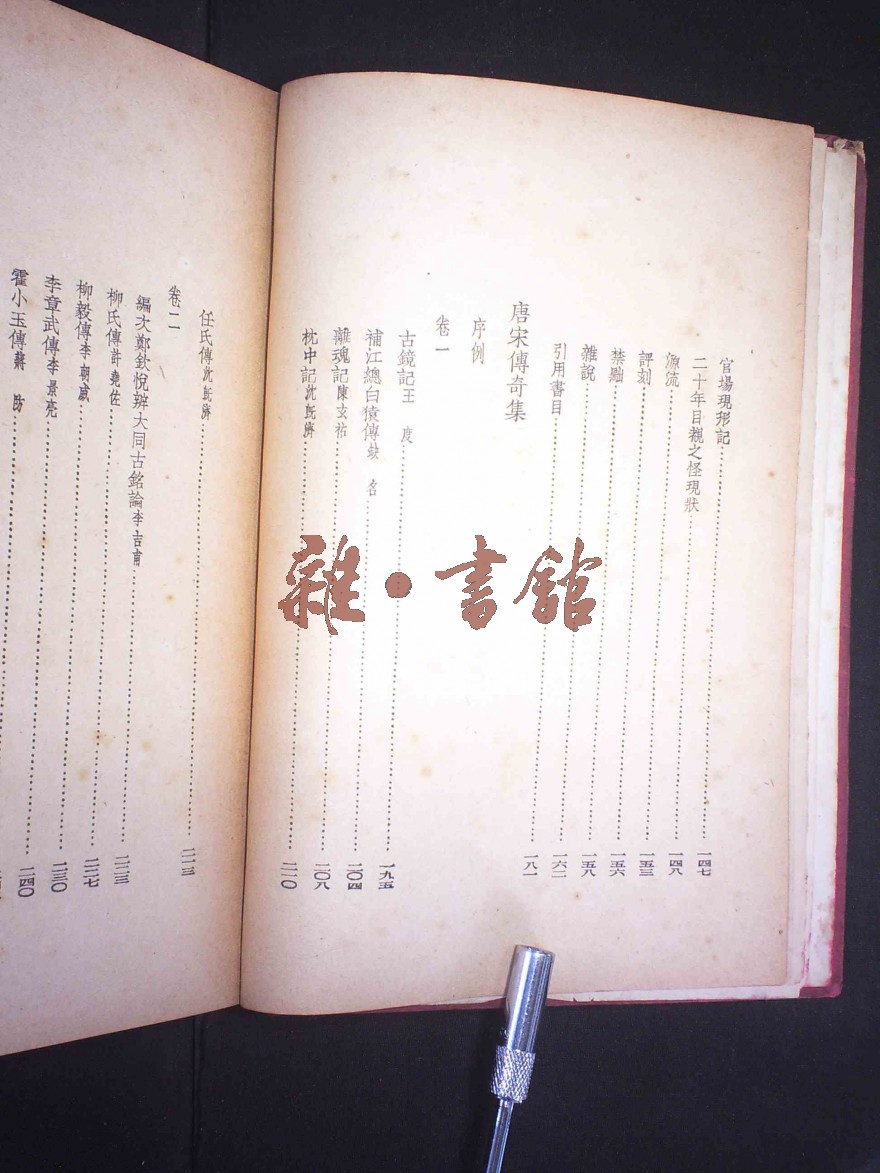 官場現形記一四七
二十年目覩之怪現狀一四八
源流一五三
評刻一五六
禁黜一五八
雜說一六二
引用書目一八一
唐宋傳奇集
序例
卷一
古鏡記王 度一九五
補江總白猿傳缺 名二〇四
離魂記陳玄祐二〇八
枕中記沈旣濟二一〇
任氏傳沈旣濟二一三
卷二
編次鄭欽悅辨大同古銘論李吉甫二二三
柳氏傳許堯佐二二七
柳毅傳李朝威二三〇
李章武傳李景亮二四〇
霍小玉傳蔣 防
雜·書館